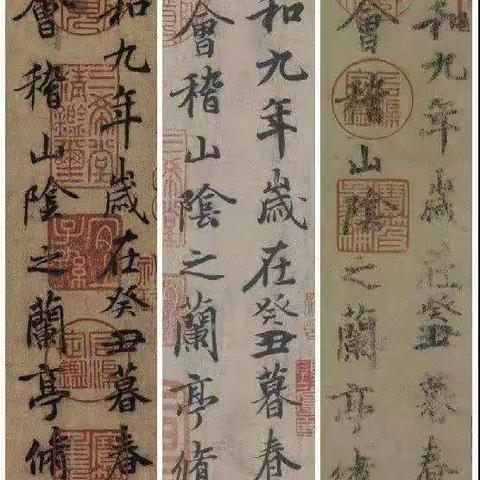 和九年歲在癸丑暮春
會稽山陰之蘭亭脩
和九年歲在癸丑暮春
會稽山陰之蘭亭脩
和九年歲在癸丑暮春
會稽山陰之蘭亭脩